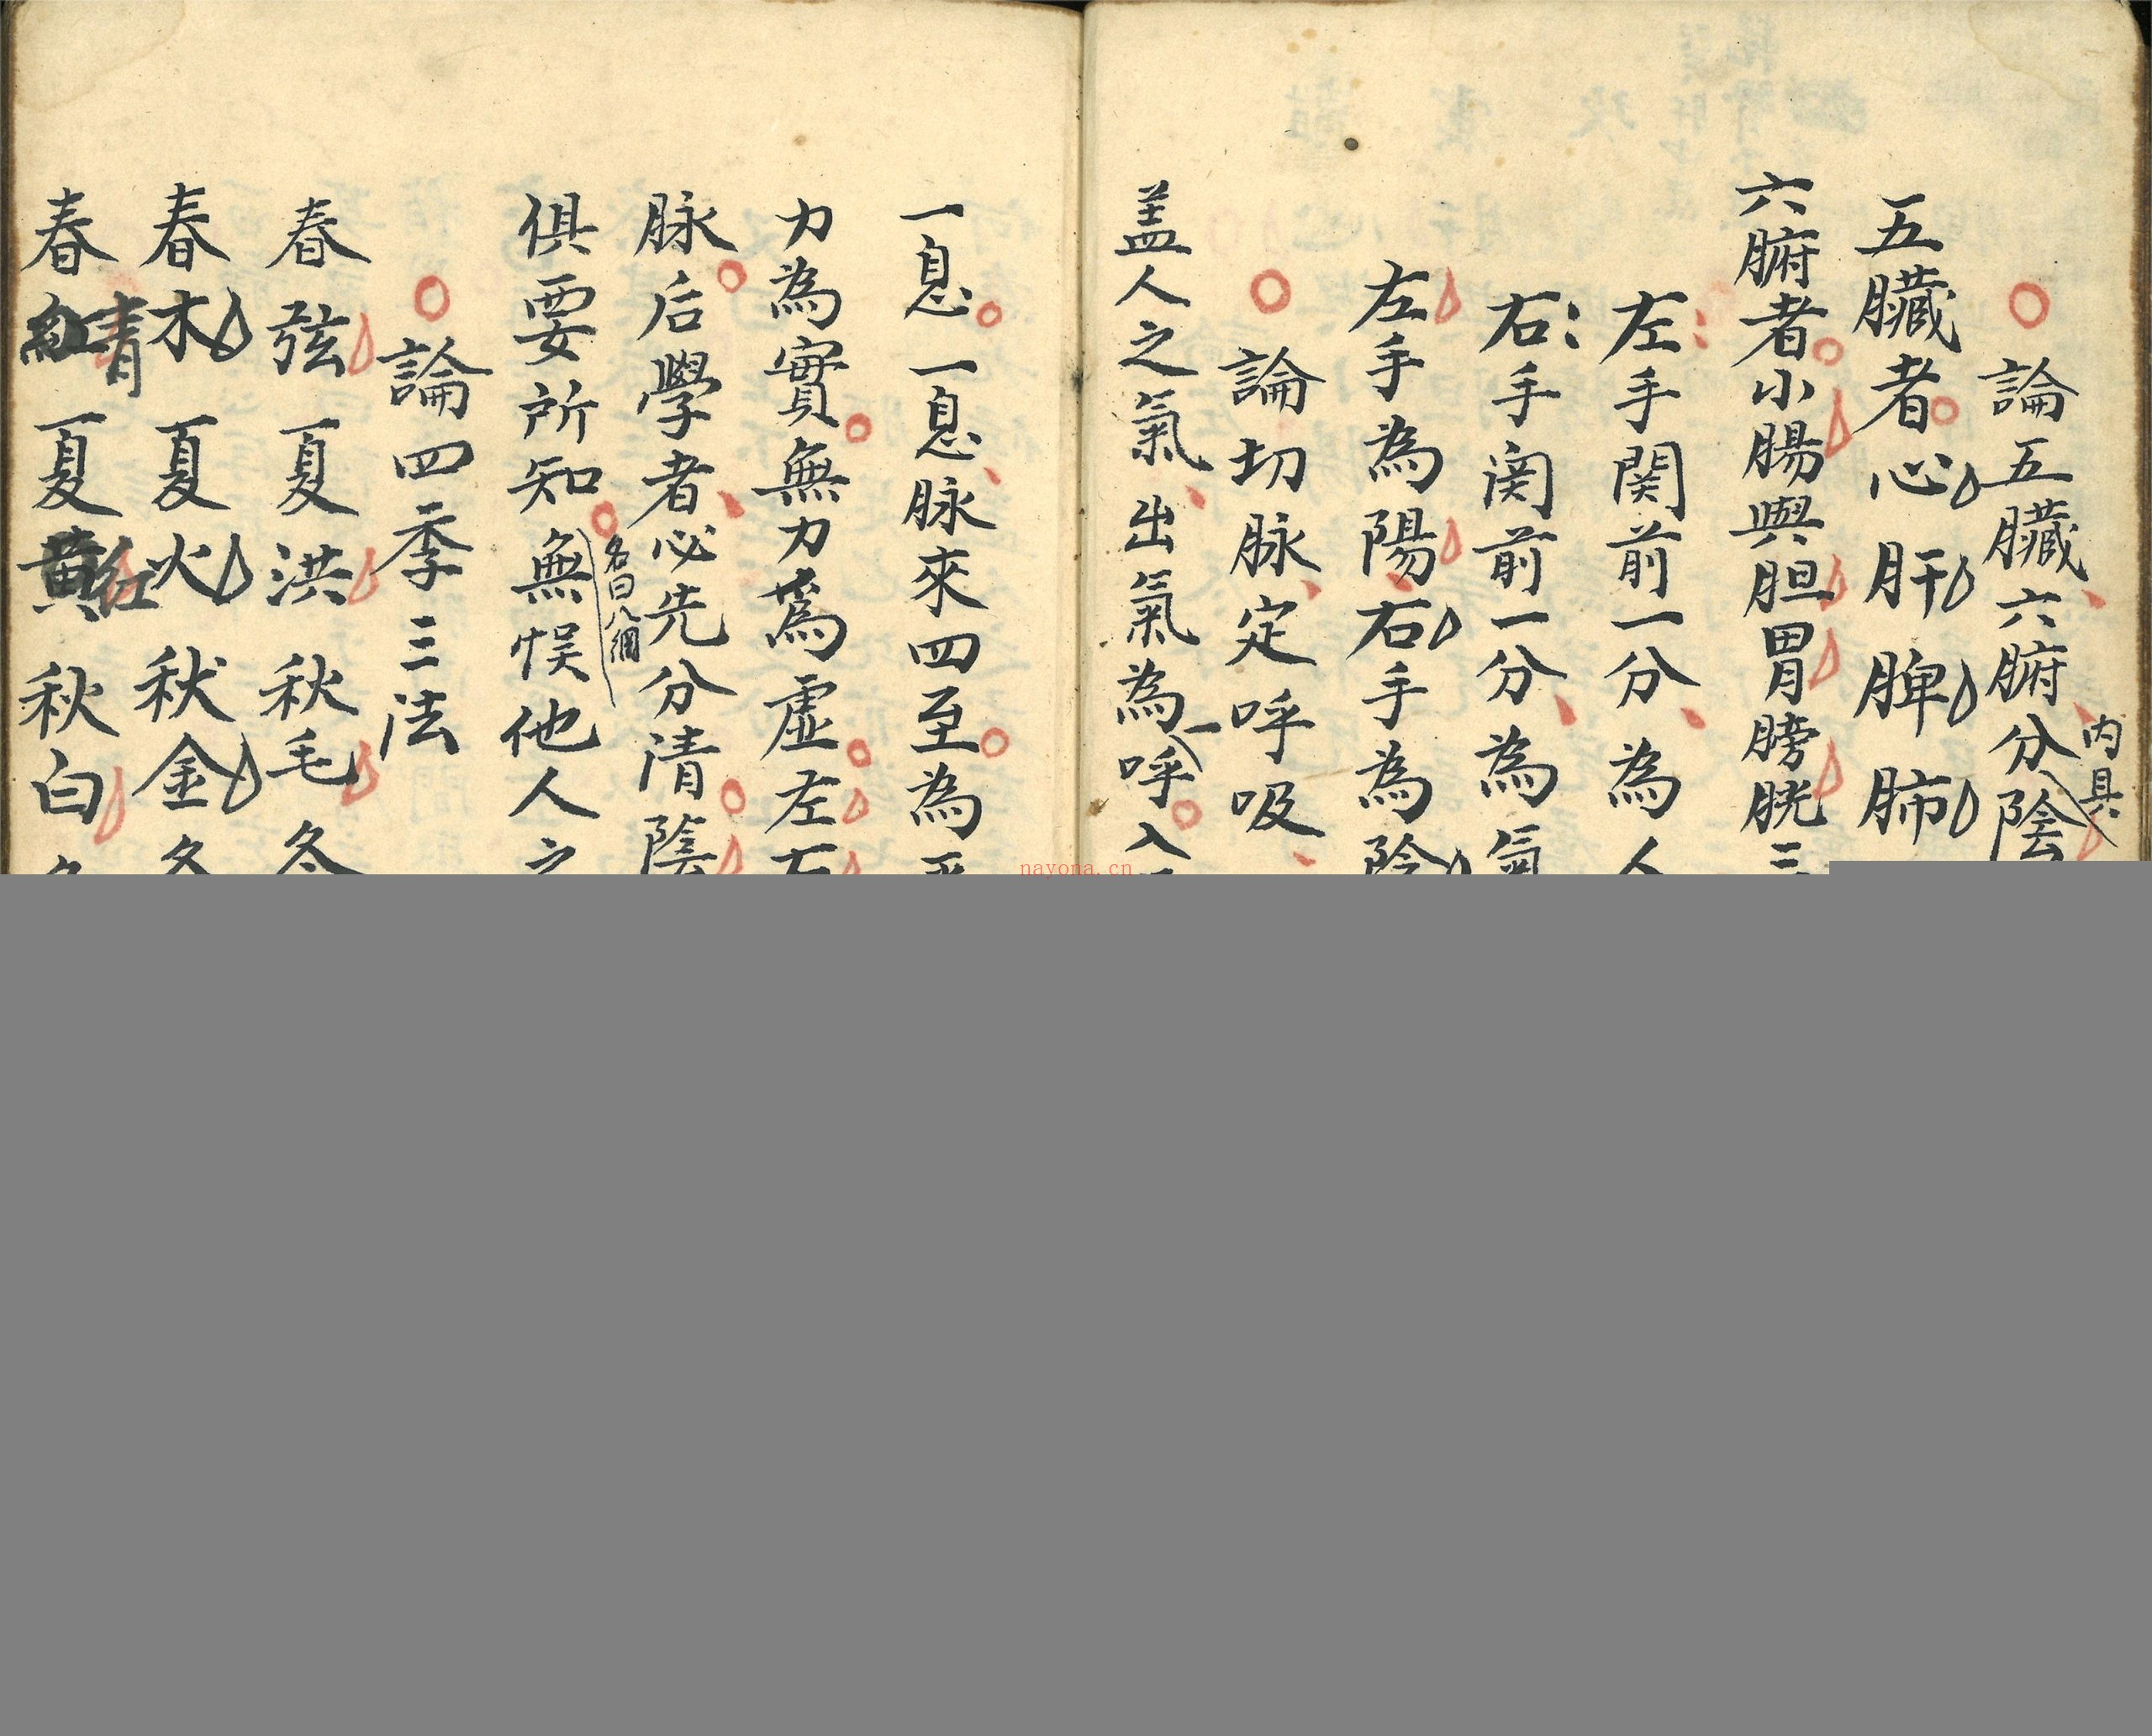 論五臟六腑分陰
内具
五臟者心肝脾肺
六腑者小腸與胆胃膀胱三
左手関前一分為人
右手関前一分為氣
左手為陽右手為陰
論切脉定呼吸
盖人之氣出氣為一呼入
一息一息脉來四至為
力為實無力為虛左右
脉后學者必先分清陰
名曰八綱
俱要所知無悮他人之
論四季三法
春弦夏洪秋毛冬
春木夏火秋金冬
春青夏红秋白
nayona.cn